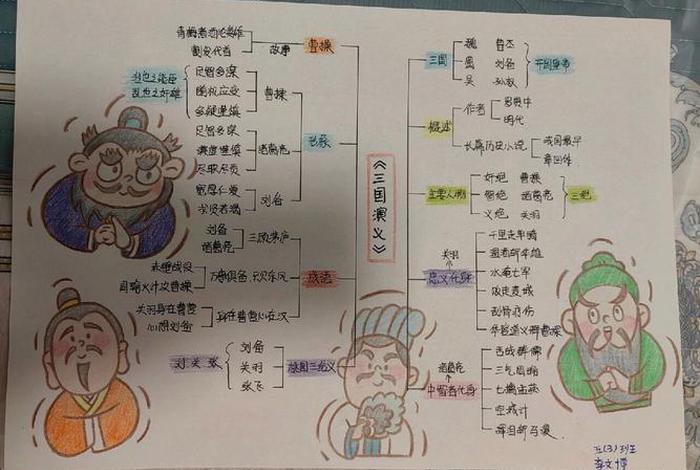 《三国演义》
青梅煮酒论英雄
割发代首
故事
曹操
治世之能臣
乱世之奸雄
足智多谋
随机应变
多疑谨慎
曹操
足智多谋
谨慎
尽职尽责
诸葛亮
宽厚仁爱
求贤若渴
刘备
刘备
诸葛亮
三顾茅庐
赤壁战役
周瑜义计攻曹操
万事俱备,只欠东风
关羽身在曹营
心想刘备
身在曹营心在汉
成语
刘关张
刘备
关羽
张飞
桃园三结义
三国
魏 曹丕
蜀 刘备
吴 孙权
开国皇帝
概述
作者
罗贯中
明代
长篇历史小说
我国最早
章回体
主要人物
奸绝 曹操
智绝 诸葛亮
义绝 关羽
三绝
关羽
忠义化身
千里走单骑
温酒斩华雄
水淹七军
败走麦城
刮骨疗伤
华容道义释曹操
诸葛亮
中智者化身
舌战群儒
三气周瑜
七擒孟获
空城计
挥泪斩马谡
五(3)班
李文博